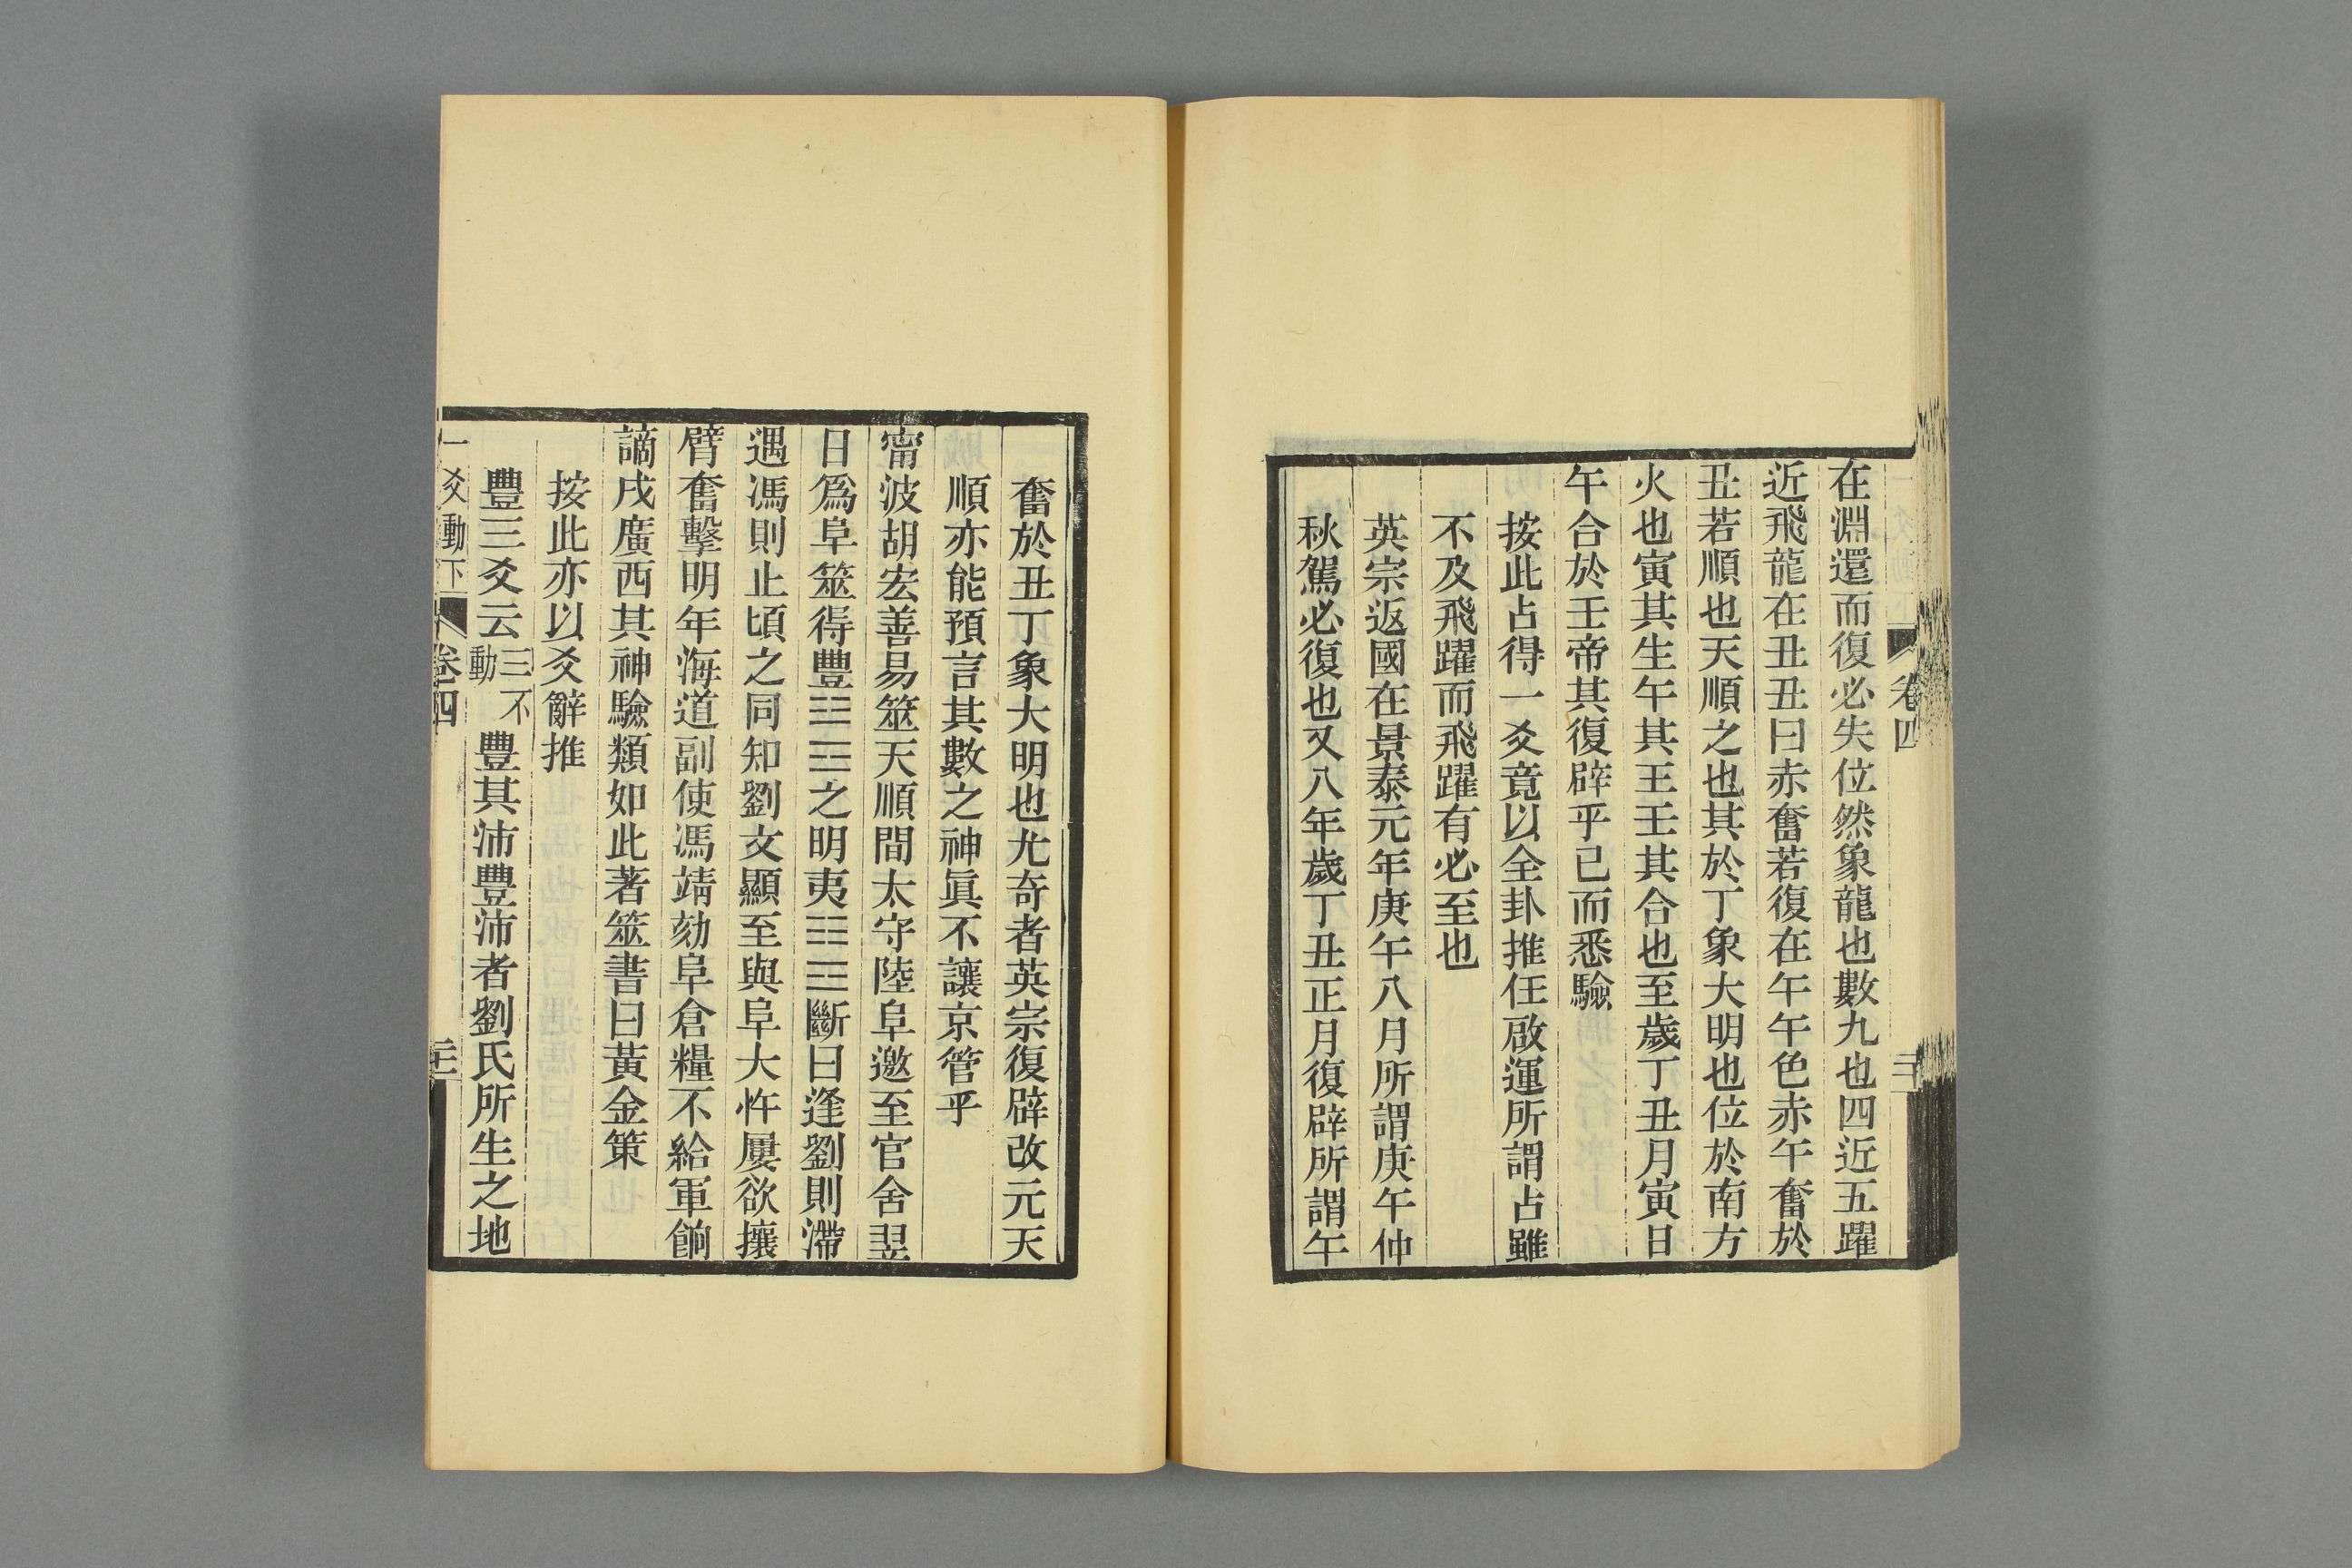 在淵還而復必失位然象龍也數九也四近五躍
近飛龍在丑丑曰赤奮若復在午午色赤午奮於
丑若順也天順之也其於丁象大明也位於南方
火也寅其生午其王壬其合也至歲丁丑月寅日
午合於壬帝其復辟乎已而悉驗
按此占得一爻竟以全卦推仼啟運所謂占雖
不及飛躍而飛躍有必至也
英宗返國在景泰元年庚午八月所謂庚午仲
秋駕必復也又八年歲丁丑正月復辟所謂午
卷四
奮於丑丁象大明也尤奇者英宗復辟改元天
順亦能預言其數之神眞不讓京管乎
甯波胡宏善易筮天順間太守陸阜邀至官舍翌
日爲阜筮得豐☳☲之明夷☷☲斷曰逢劉則滯
遇馮則止頃之同知劉文顯至與阜大忤屢欲攘
臂奮擊明年海道副使馮靖劾阜倉糧不給軍餉
謫戍廣西其神驗類如此著筮書曰黃金策
按此亦以爻辭推
豐三爻云三不動豐其沛豐沛者劉氏所生之地
一爻動下 卷四